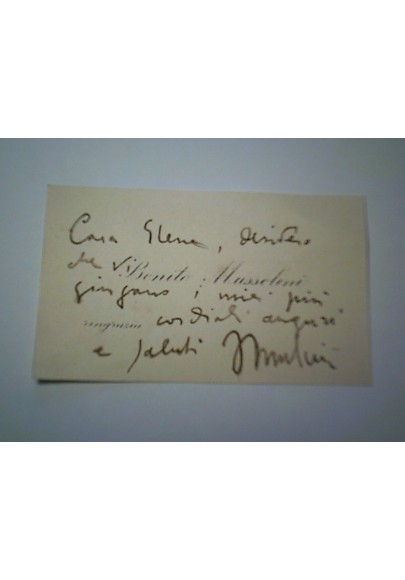 Cara Elena, desidero
che Vi
Benito Mussolini
giungano i miei più
ringrazia
cordiali auguri
e saluti Mussolini